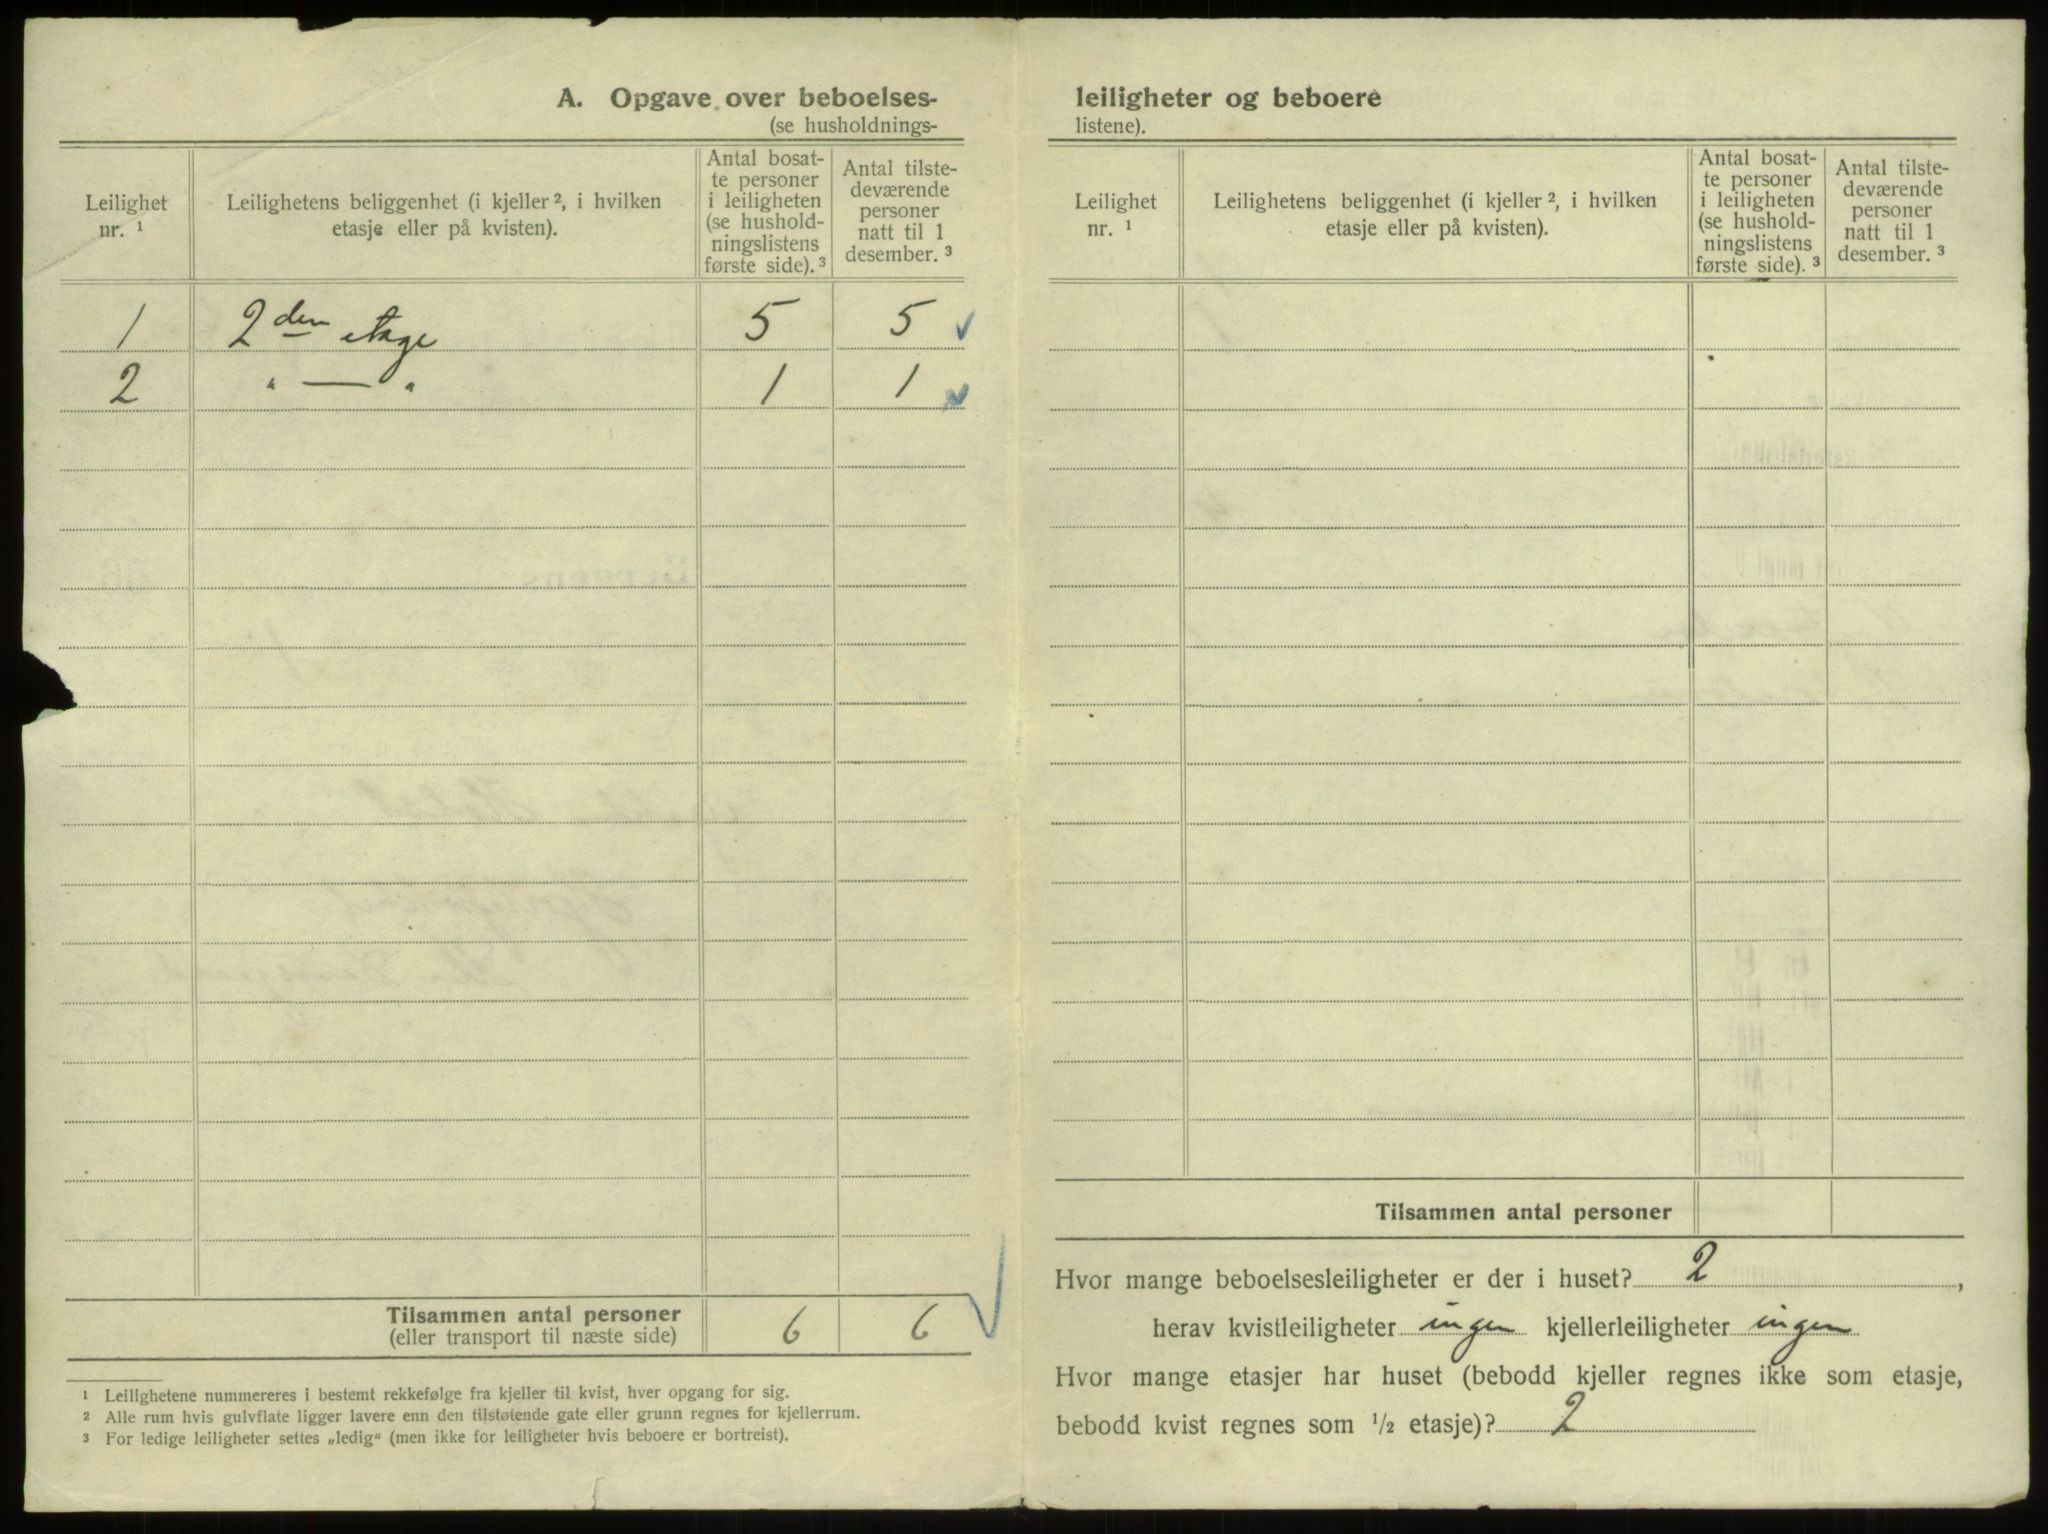 A. Opgave over beboelses-
(se husholdnings-
Leilighet nr. 1
Leilighetens beliggenhet (i kjeller 2, i hvilken
etasje eller på kvisten).
Antal bosat-
te personer
i leiligheten
(se hushold-
ningslistens
første side). 3
Antal tilste-
deværende
personer
natt til 1
desember. 3
1 2den etage 5 5
2 " — " 1 1
Tilsammen antal personer
(eller transport til næste side) 6 6
1 Leilighetene nummereres i bestemt rekkefølge fra kjeller til kvist, hver opgang for sig.
2 Alle rum hvis gulvflate ligger lavere enn den tilstøtende gate eller grunn regnes for kjellerrum.
3 For ledige leiligheter settes „ledig“ (men ikke for leiligheter hvis beboere er bortreist).
leiligheter og beboere
listene).
Leilighet nr. 1
Leilighetens beliggenhet (i kjeller 2, i hvilken
etasje eller på kvisten).
Antal bosat-
te personer
i leiligheten
(se hushold-
ningslistens
første side). 3
Antal tilste-
deværende
personer
natt til 1
desember. 3
Tilsammen antal personer
Hvor mange beboelsesleiligheter er der i huset? 2,
herav kvistleiligheter ingen kjellerleiligheter ingen
Hvor mange etasjer har huset (bebodd kjeller regnes ikke som etasje,
bebodd kvist regnes som 1/2 etasje)? 2